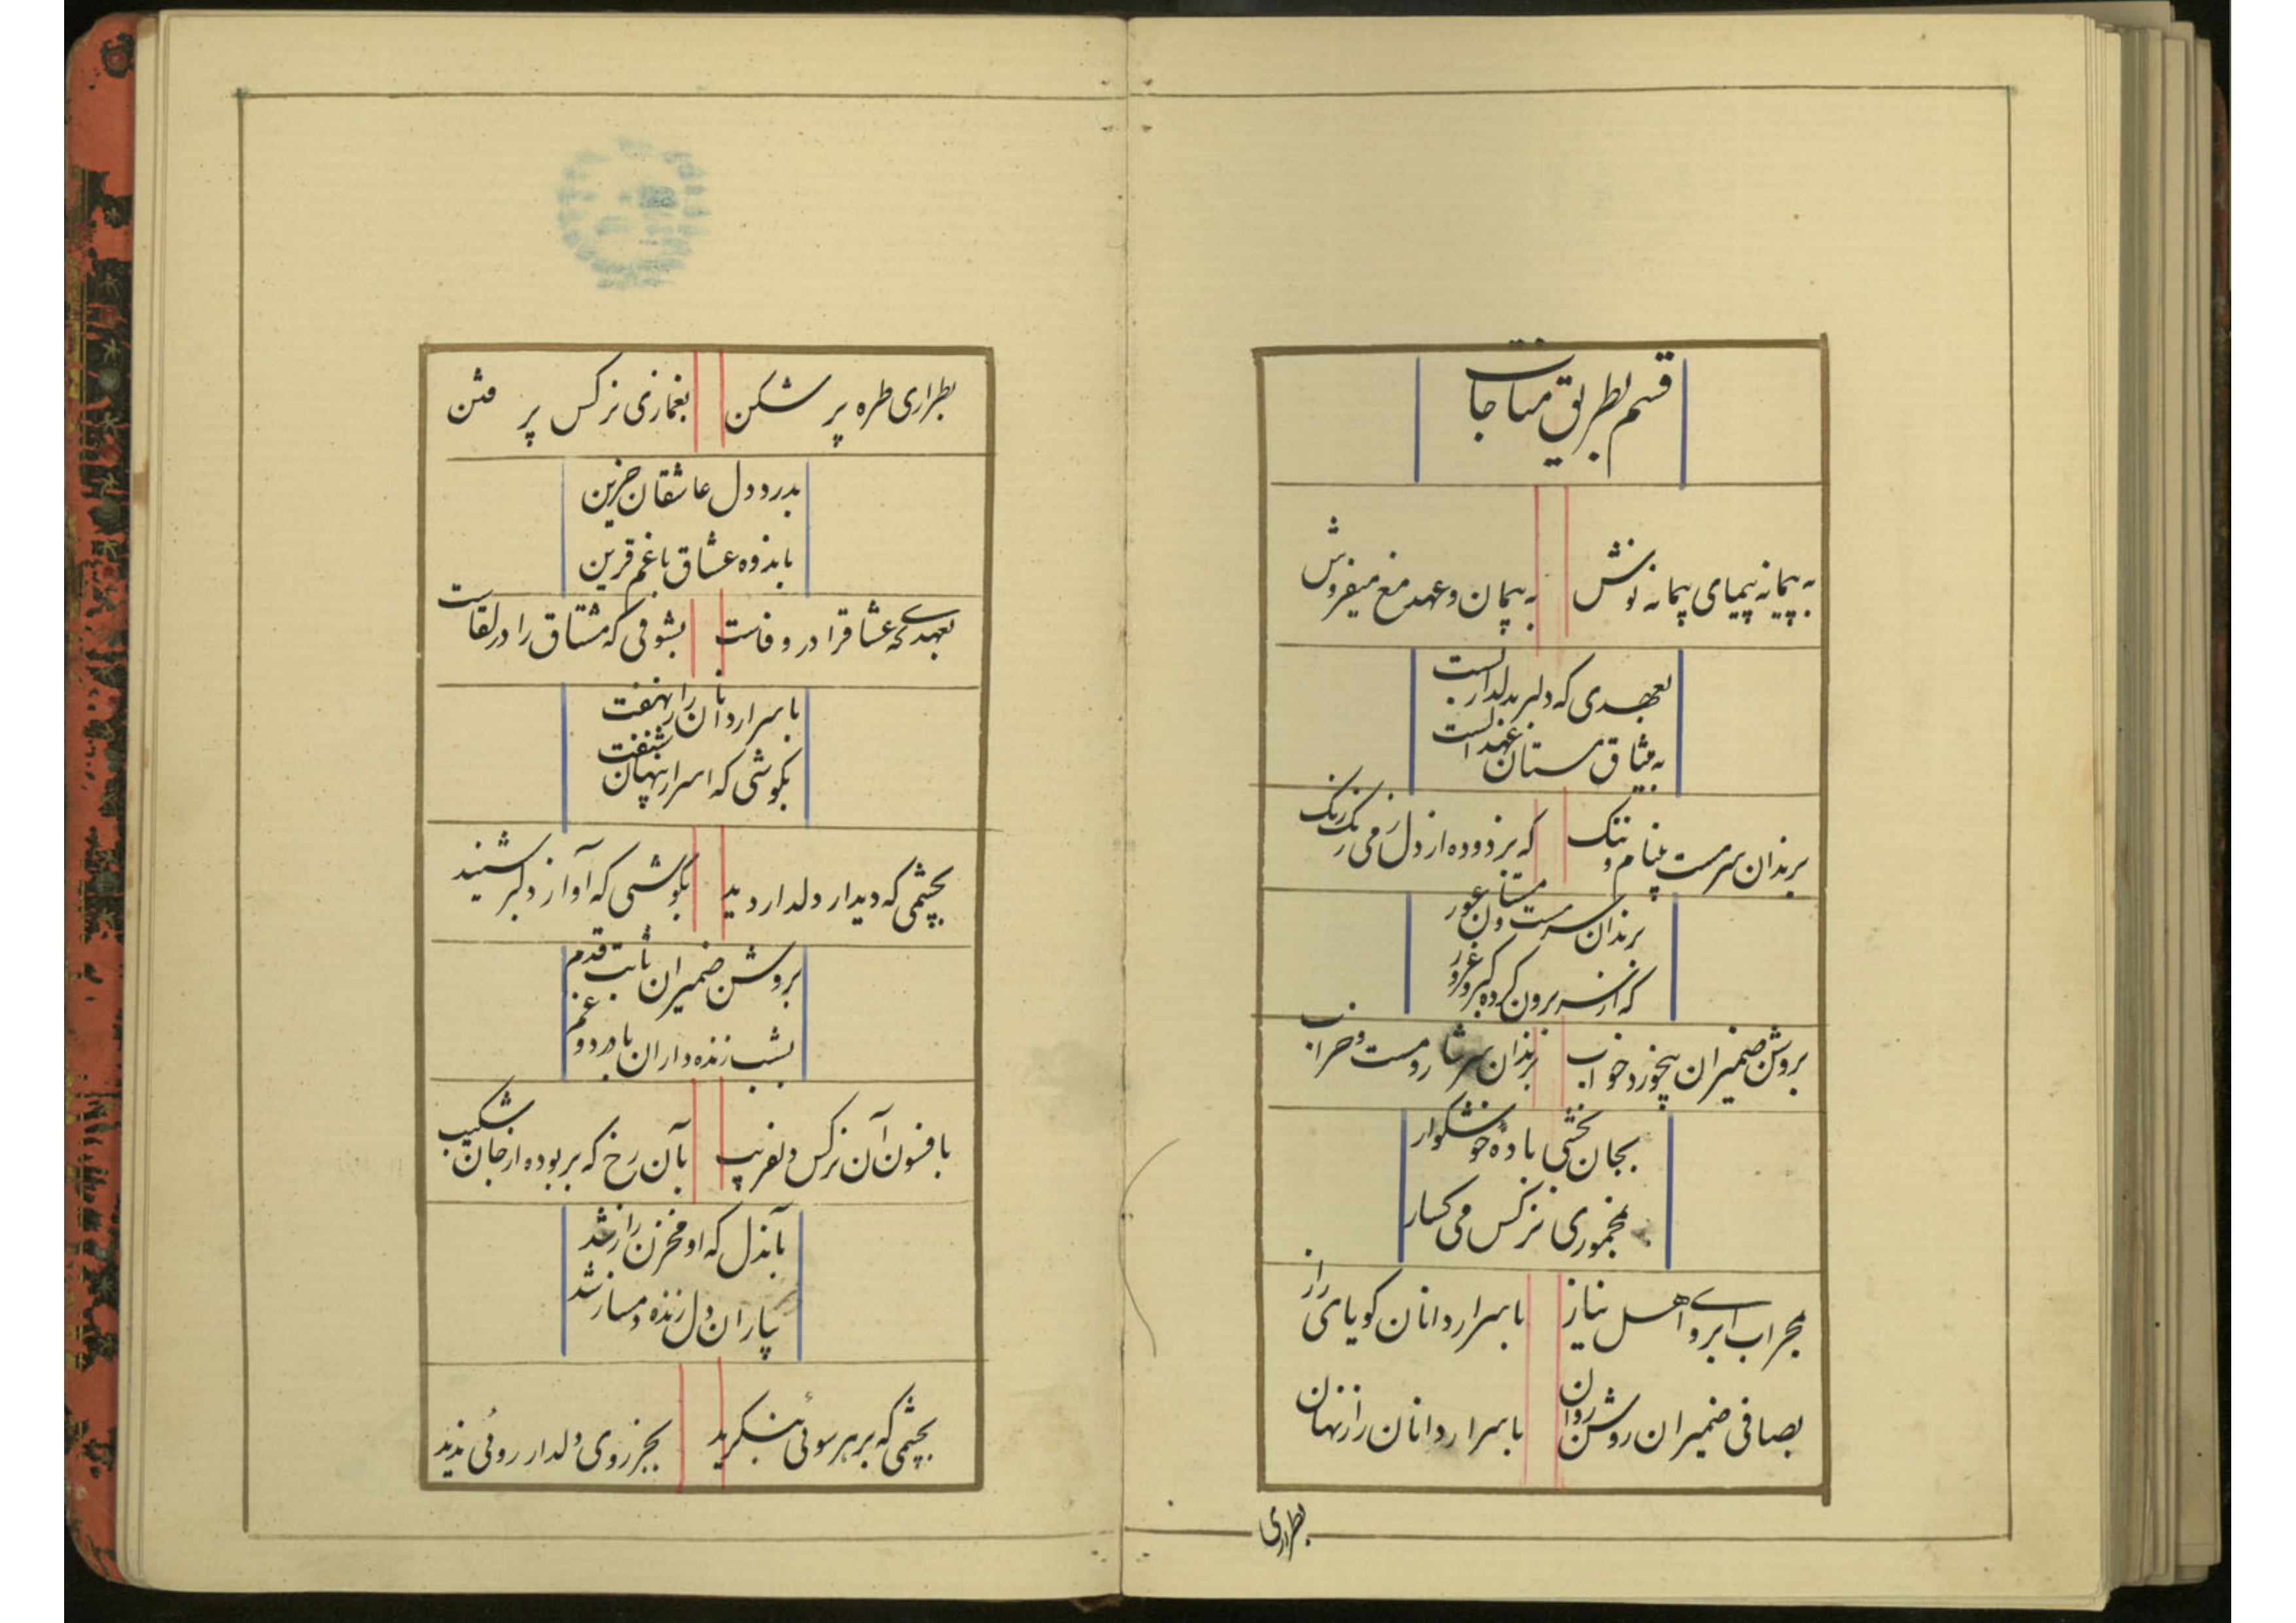 قسم بطریق مناجات
به پیمانه پیمای پیمانه نوش به پیمان و عهد مغ میفروش
بعهدی که دلبر بدلدار بست
به میثاق مستان عهد الست
برندان سرمست بینام و ننک که بزدوده از دل ز می زنک رنک
برندان سرمست و مستان عور
که از سر برون کرده کبر و غرور
بروشن ضمیران بیخورد و خواب برندان سرشار و مست و خراب
بجان بخشی باده خوشکوار
بمخموری نرکس می کسار
بمحراب ابروے اهل نیاز باسرار دانان کویای راز
بصافی ضمیران روشن روان باسرار دانان راز نهان
بطراری
بطراری طره پر شکن بغمازی نرکس پر فتن
بدرد دل عاشقان حزین
باندوه عشاق با غم قرین
بعهدے که عشاقرا در وفاست بشوقی که مشتاق را در لقاست
باسرار دانان راز نهفت
بکوشی که اسرار پنهان شنفت
بچشمی که دیدار دلدار دید بکوشی که آواز دلبر شنید
بروشن ضمیران ثابت قدم
بشب زنده داران با درد و غم
بافسون آن نرکس دلفریب بآن رخ که بربوده از جان شکیب
بآندل که او مخزن راز شد
بیاران دل زنده دمساز شد
بچشمی که بر هر سوئی بنکرید بجز روی دلدار روئی ندید